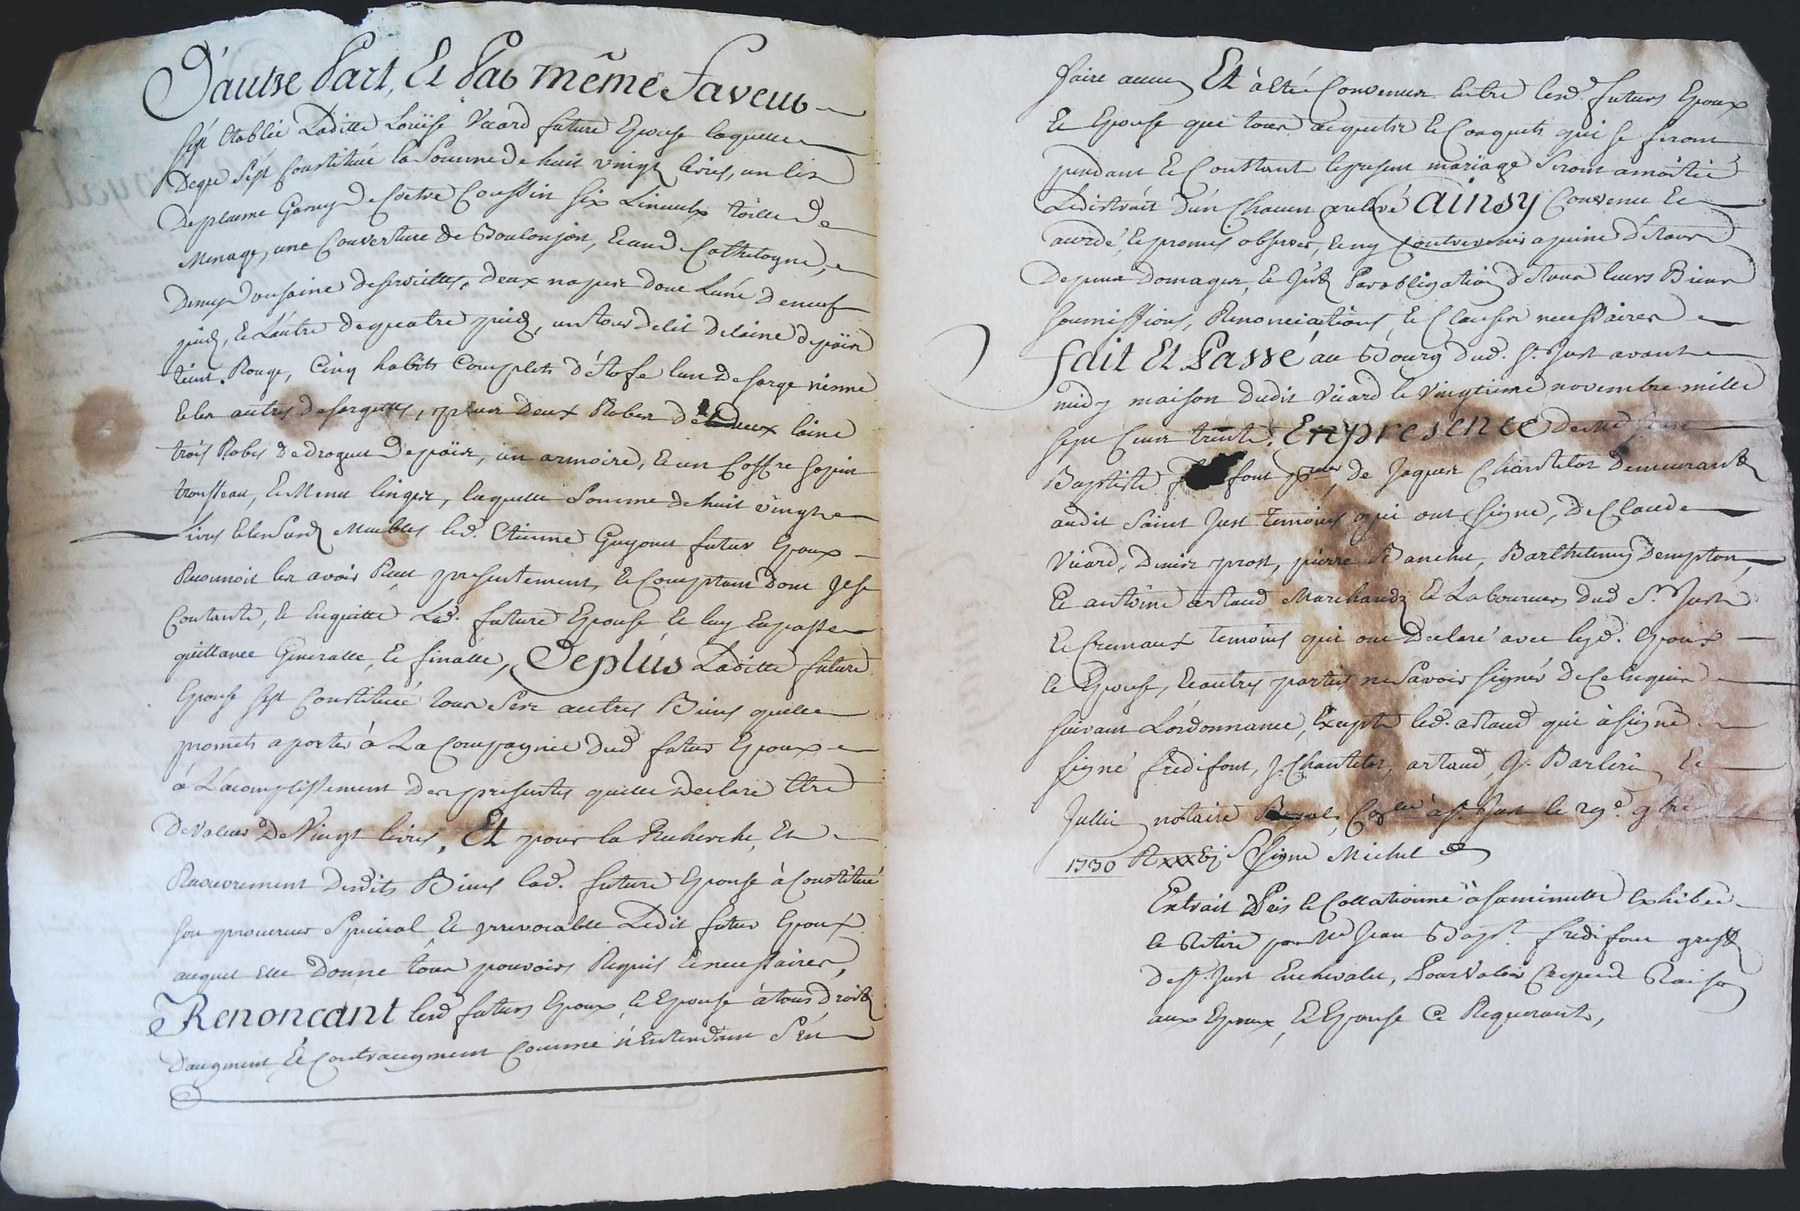 D'autre Part, Et Par même faveur
s'est Etablie Laditte Loüise Viard future Epouse laquelle
De gré s'est Constituée la Somme de huit vingt livres, un lit
De plume Garny de Coetre Coussin six Linceulx toille de
Menage, une Couverture de Boulonjon, Eaud Cathelogne,
Demy dousaine de serviettes, deux napes donc L'une de neuf
pied, et L'autre de quatre pied, un tour de lit de laine de païs
teint Rouge, Cinq habits Complets d'étofe l'un de sarge vienne
et les autres de sargettes, plus deux Robes de laine
trois Robes de droguet de païs, un armoire, et un Coffre sapin
trousseau, et Menu linges, laquelle Somme de huit vingt
livres et les Susd. Meubles led. Etienne Guyonet futur Epoux
Reconnoit les avoir Reçu presentement, et Comptant Dont Je se
Contante, et en quitte Lad. future Epouse et luy en passe
quittance Generalle, et finalle, De plus Laditte future
Epouse s'est Constituée tous Ses autres Biens qu'elle
promets aporter à La Compagnie dud. futur Epoux
à L'acomplissement des presentes qu'elle declare être
De valeur De Vingt livres, Et pour la Recherche, Et
Recouvrement desdits Biens lad. future Epouse à Constitué
son procureur Special et irrevocable Ledit futur Epoux
auquel elle Donne tous pouvoirs Requis et necessaires,
Renoncant lesd. futurs Epoux, et Epouse à tous droits
D'augment, et Contraugment Comme n'Entendant S'en
faire aucun Et à été Convenue entre lesd. futurs Epoux
et Epouse que tous acquets et Conquets qui se feront
pendant et Constant le present mariage Seront a moitié
Ledistrait d'un Chacun prelevé Ainsy Convenu et
acordé, et promis observer, et n'y Contrevenir a peine de tous
Depens Domages, et Jnts Par obligation de tous leurs Biens
Soumissions, Renonciations, et Clauses necessaires
fait Et Passé au Bourg dud. St. Just avant
midy maison dudit Viard le vingtieme novembre mille
sept Cent trente, En presence de Me Jean
Baptiste font de Jaques Chantelot Demeurants
audit Saint Just temoins qui ont Signé, De Claude
Viard, Denis prost, pierre Barthelemy Dempton,
et antoine artaud Marchands et Laboureurs dud St. Just
et Cremaux temoins qui ont Declaré avec lesd. Epoux
et Epouse, et autres parties ne Savoir Signer de Ce Enquis
suivant L'ordonnance, Excepté led. artaud qui à Signé
Signé fredifont, J. Chantelot, artaud, J. Barlerin Et
Jullin notaire Royal, Conllé à St. Just le 29e. 9bre
1730 R xxx Signé Michel
Extrait Pris et Collationné à sa minutte Exhibée
et Retiré par Me Jean Bapt. fredifont greff
de St. Just En chevalet, Pour Valoir Ce que de Raison
aux Epoux, et Epouse Ce Requerants,